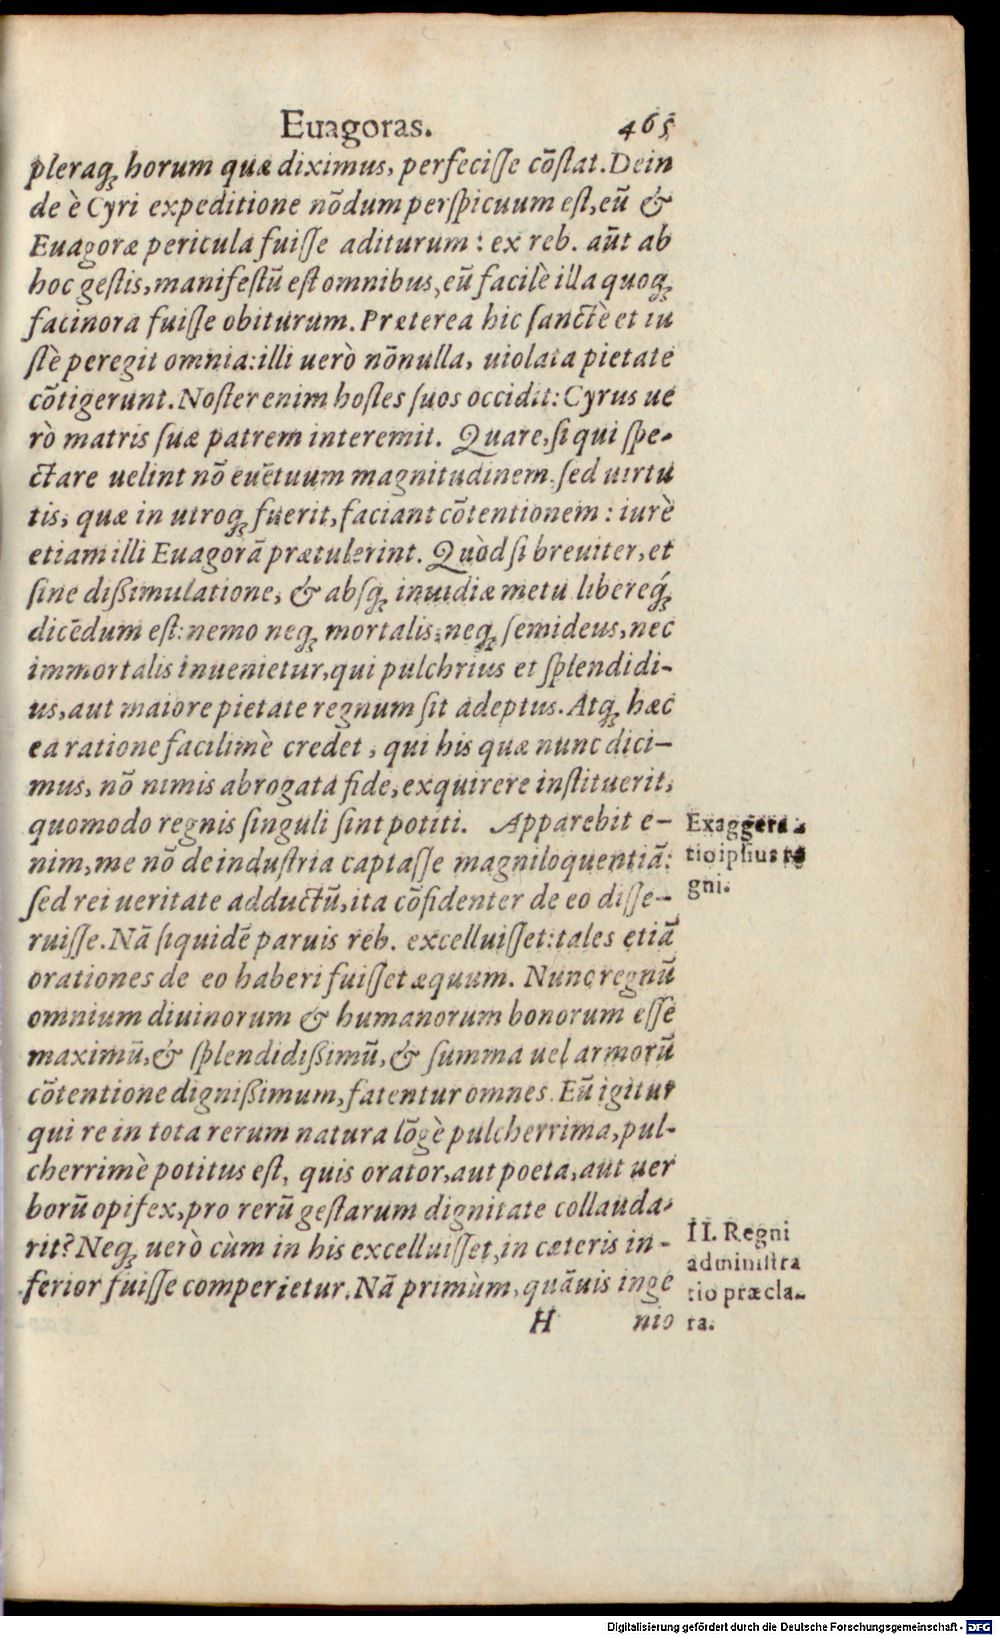 Euagoras. 465
pleraq́; horum quæ diximus, perfecisse cōstat. Dein
de è Cyri expeditione nōdum perspicuum est, eū &
Euagoræ pericula fuisse aditurum: ex reb. aūt ab
hoc gestis, manifestū est omnibus, eū facilè illa quoq;
facinora fuisse obiturum. Præterea hic sanctè et iu
stè peregit omnia: illi uerò nōnulla, uiolata pietate
cōtigerunt. Noster enim hostes suos occidit: Cyrus ue
rò matris suæ patrem interemit. Quare, si qui spe-
ctare uelint nō euētuum magnitudinem, sed uirtu
tis, quæ in utroq; fuerit, faciant cōtentionem: iurè
etiam illi Euagorā prætulerint. Quòd si breuiter, et
sine dißimulatione, & absq; inuidiæ metu libereq́;
dicēdum est: nemo neq; mortalis, neq; semideus, nec
immortalis inuenietur, qui pulchrius et splendidi-
us, aut maiore pietate regnum sit adeptus. Atq; hæc
ea ratione facilimè credet, qui his quæ nunc dici-
mus, nō nimis abrogata fide, exquirere instituerit,
quomodo regnis singuli sint potiti. Apparebit e-
nim, me nō de industria captasse magniloquentiā:
sed rei ueritate adductū, ita cōfidenter de eo disse-
ruisse. Nā siquidē paruis reb. excelluisset: tales etiā
orationes de eo haberi fuisset æquum. Nunc regnū
omnium diuinorum & humanorum bonorum esse
maximū, & splendidißimū, & summa uel armorū
cōtentione dignißimum, fatentur omnes. Eū igitur
qui re in tota rerum natura lōgè pulcherrima, pul-
cherrimè potitus est, quis orator, aut poeta, aut uer
borū opifex, pro rerū gestarum dignitate collauda-
rit? Neq; uerò cùm in his excelluisset, in cæteris in-
ferior fuisse comperietur. Nā primùm, quāuis inge
H nio
Exaggera-
tio ipsius re
gni.
II. Regni
administra
tio præcla-
ra.
Digitalisierung gefördert durch die Deutsche Forschungsgemeinschaft - DFG